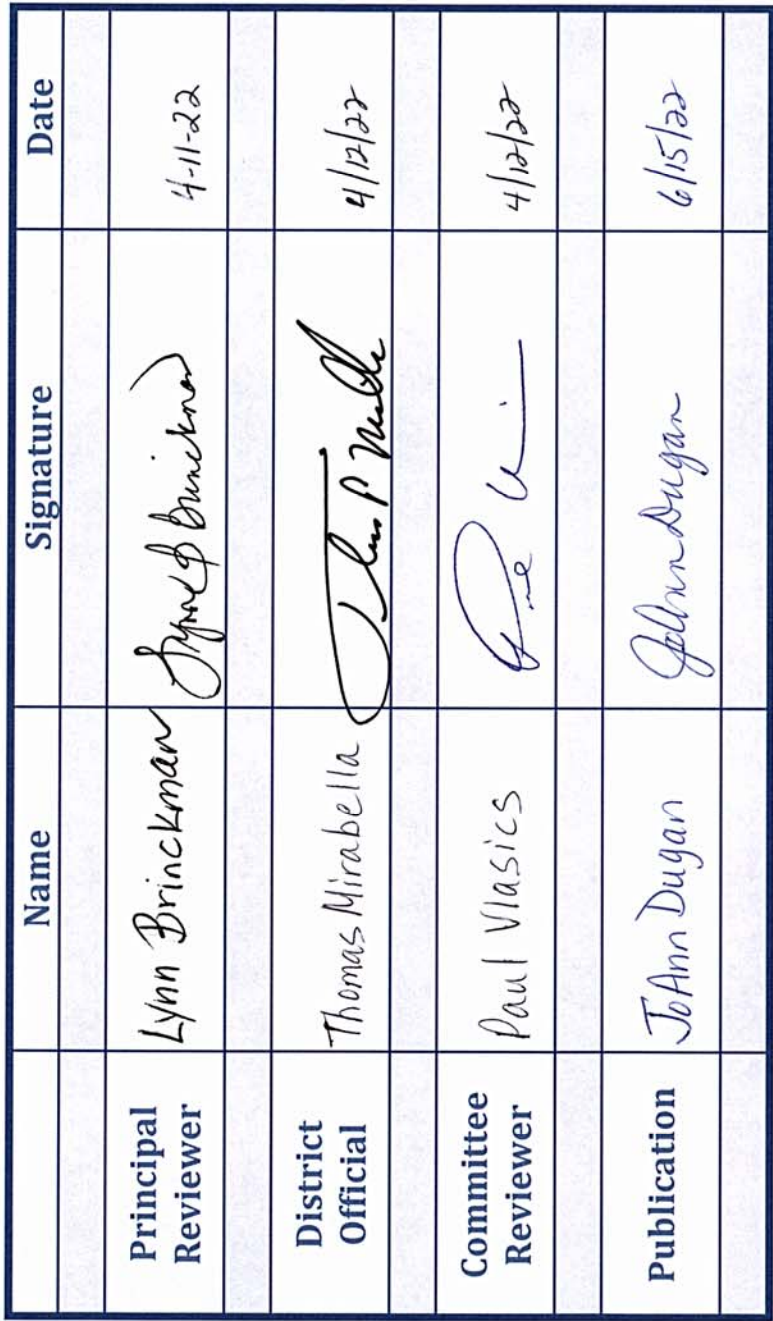 Name Signature Date
Principal Reviewer Lynn Brinckman Lynne B Brinckman 4-11-22
District Official Thomas Mirabella 4/12/22
Committee Reviewer Paul Vlasics 4/12/22
Publication JoAnn Dugan JoAnn Dugan 6/15/22